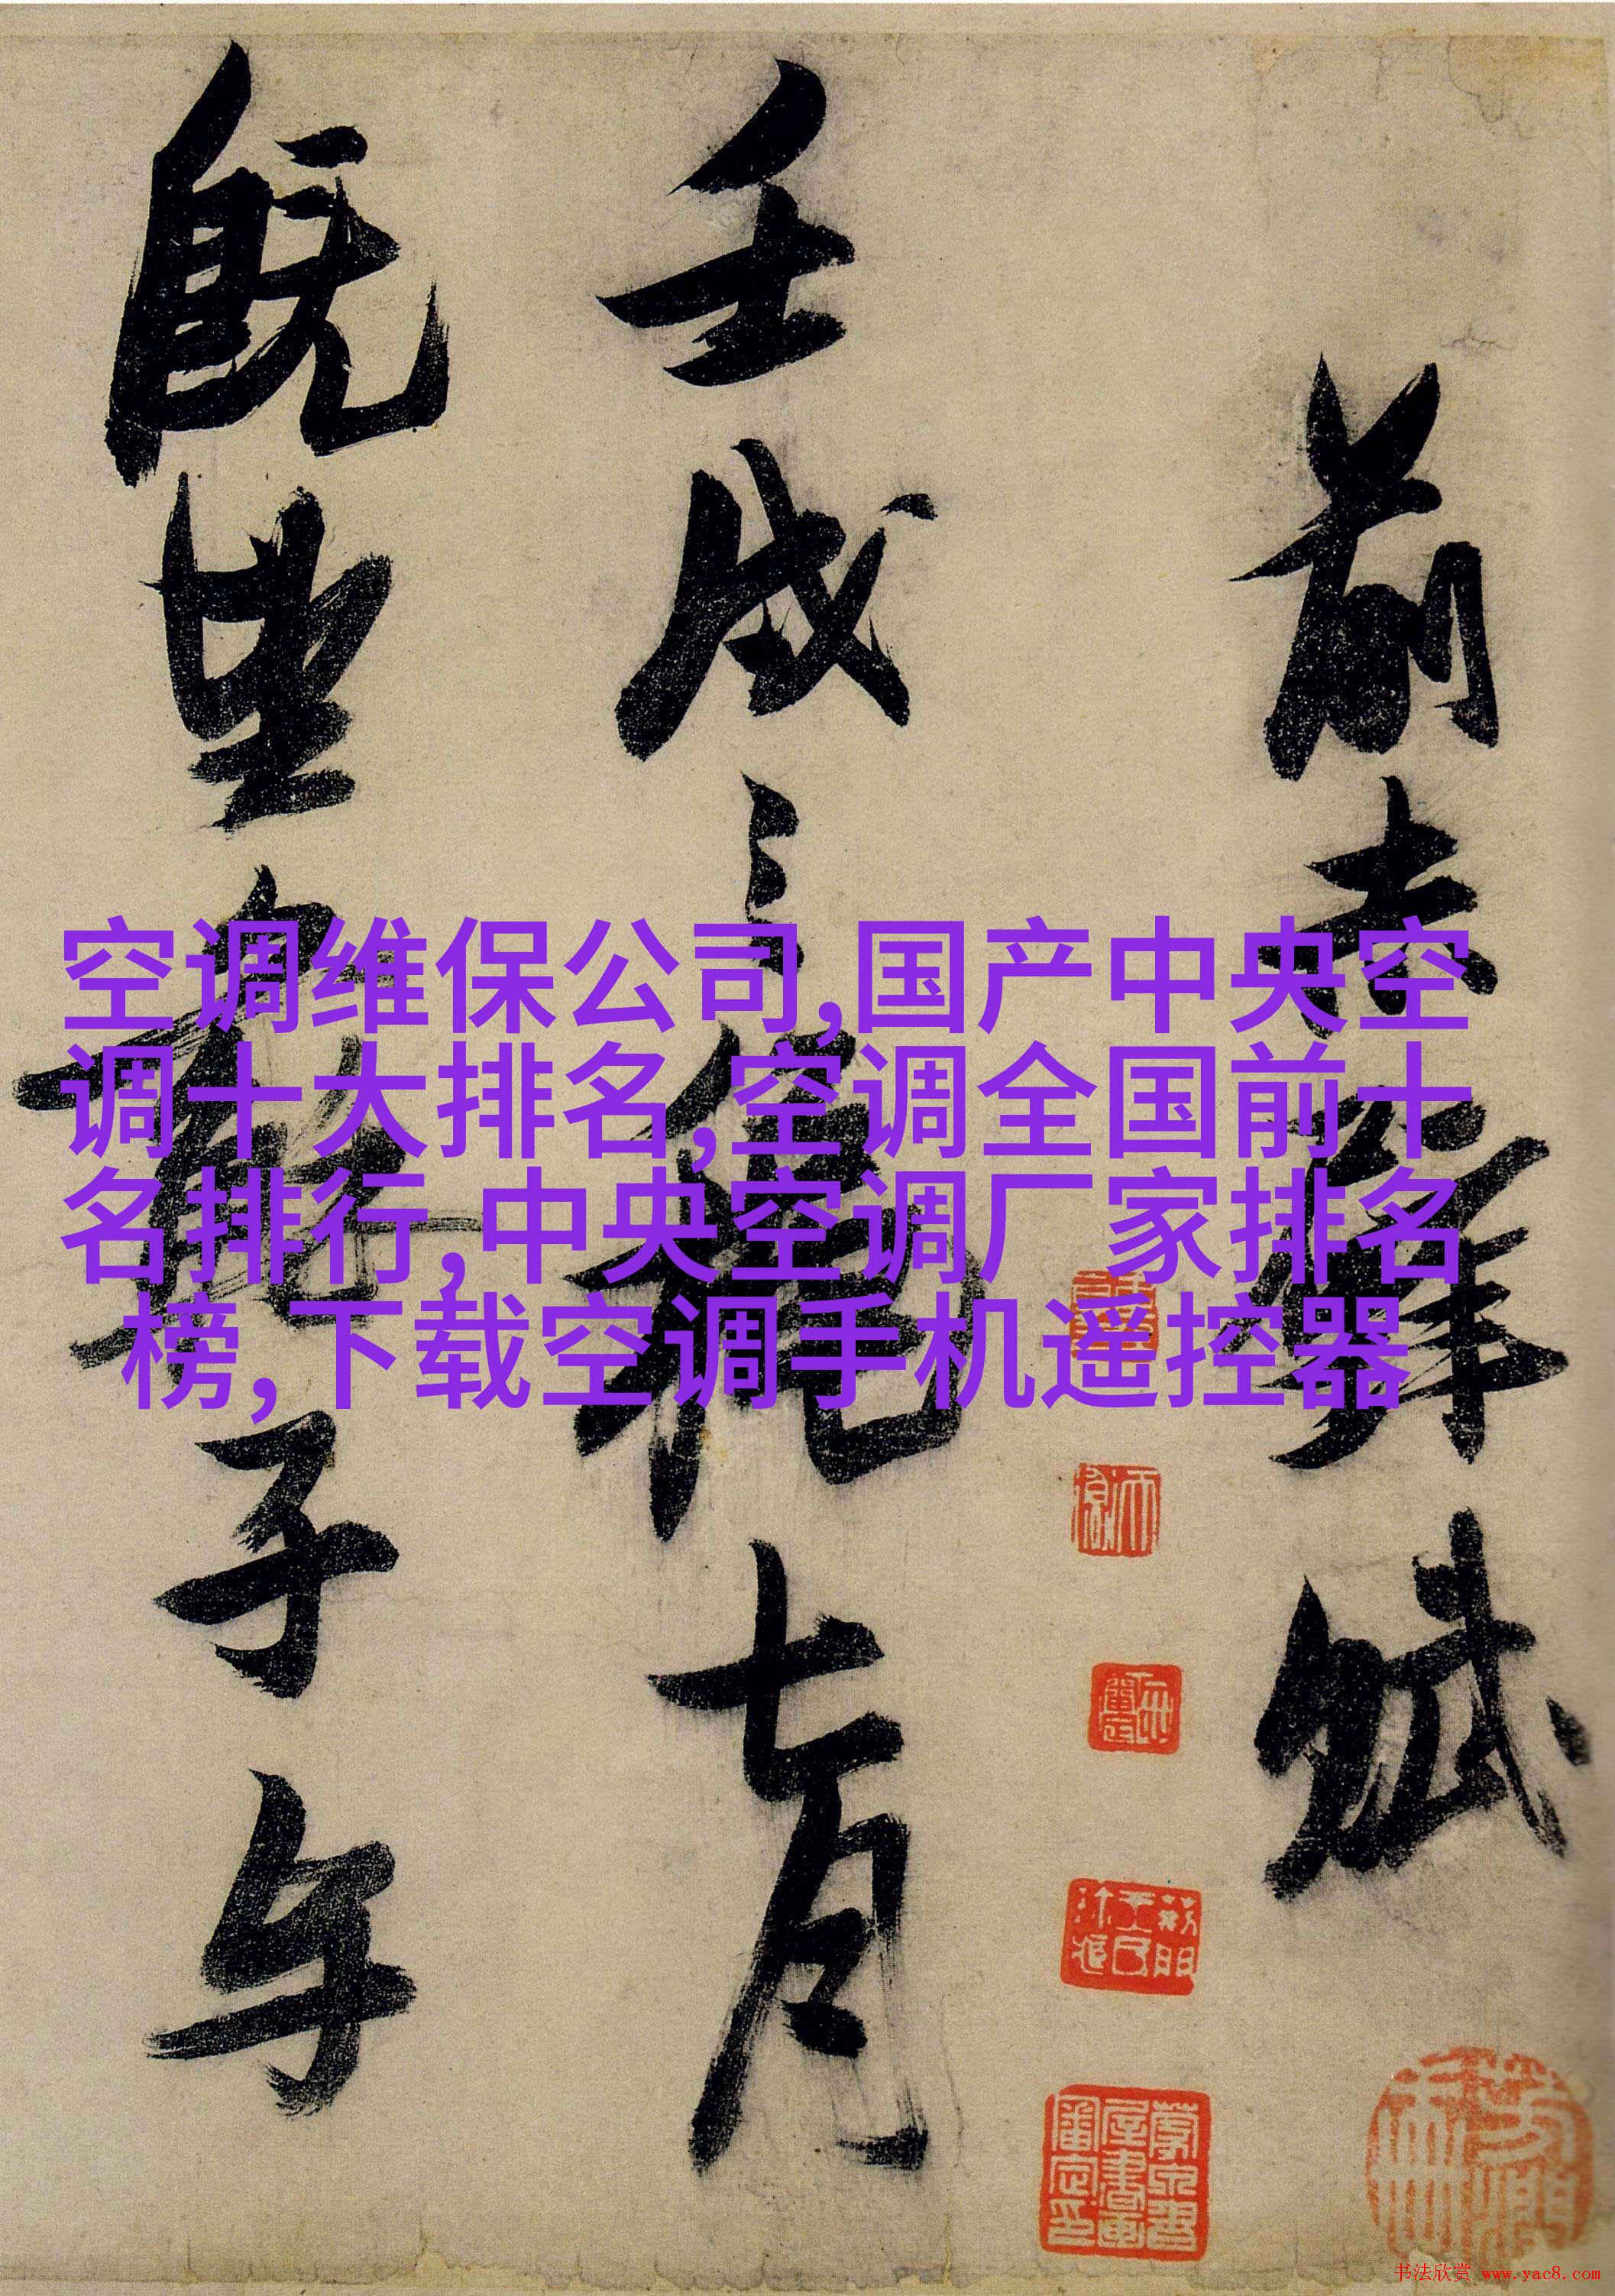 前赤壁賦
壬戌之秋七月
既望蘇子与
空调维保公司,国产中央空
调十大排名,空调全国前十
名排行,中央空调厂家排名
榜,下载空调手机遥控器
书法欣赏 www.yac8.com